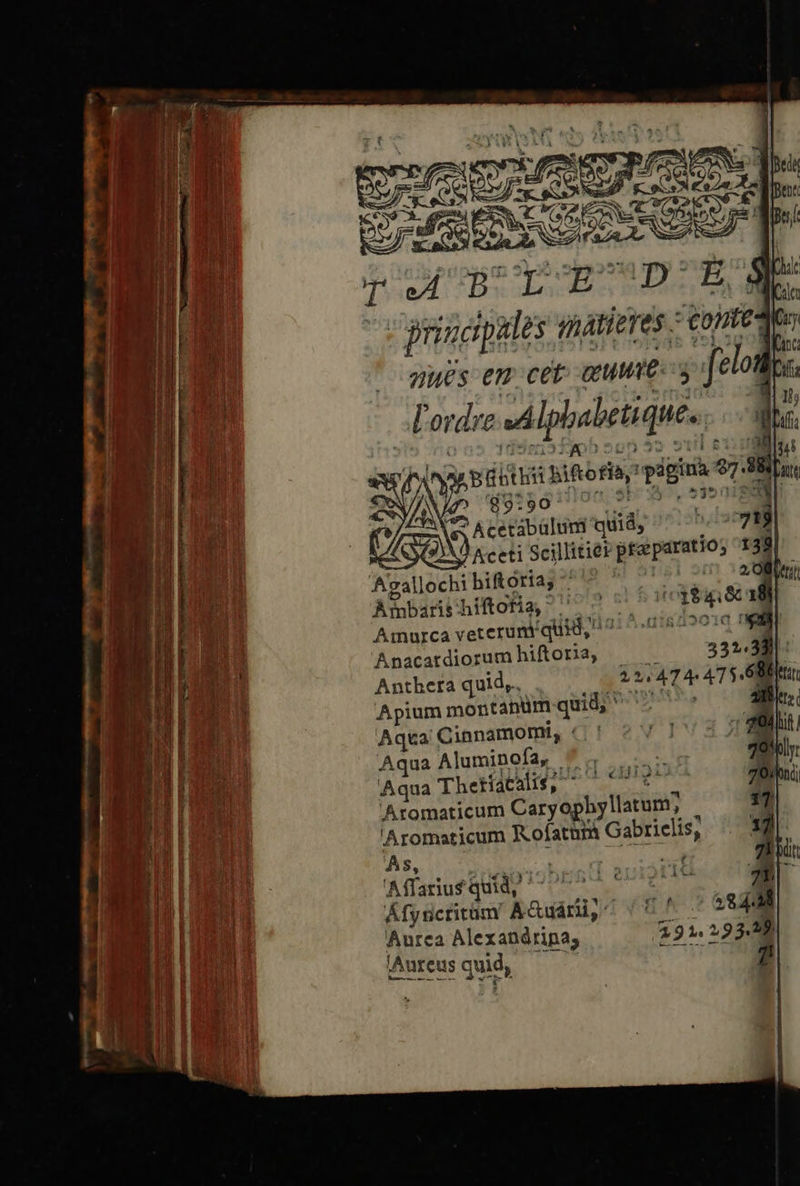 TABLE DES
principales matieres conte-
nues en cet œuure, ſelon
l'ordre Alphabetique.
Abſinthii hiſtoria, pagina 87.88
89.90
Acetabulum quid, 71
Aceti Scillitici præparatio, 138
Agallochi hiſtoria, 20
Ambaris hiſtoria, 184. & 18
Amurca veterum quid,
Anacardiorum hiſtoria, 332.33
Anthera quid, 22. 474. 475.
Apium montanum quid,
Aqua Cinnamomi, 704
Aqua Aluminoſa, 70
Aqua Theriacalis, 70
Aromaticum Caryophyllatum, 17
Aromaticum Roſatum Gabrielis, 17
As, 71
Aſſarius quid, 71
Aſyncritum Actuárii, 284.28
Aurea Alexandrina, 291. 293.29
Aureus quid, 71